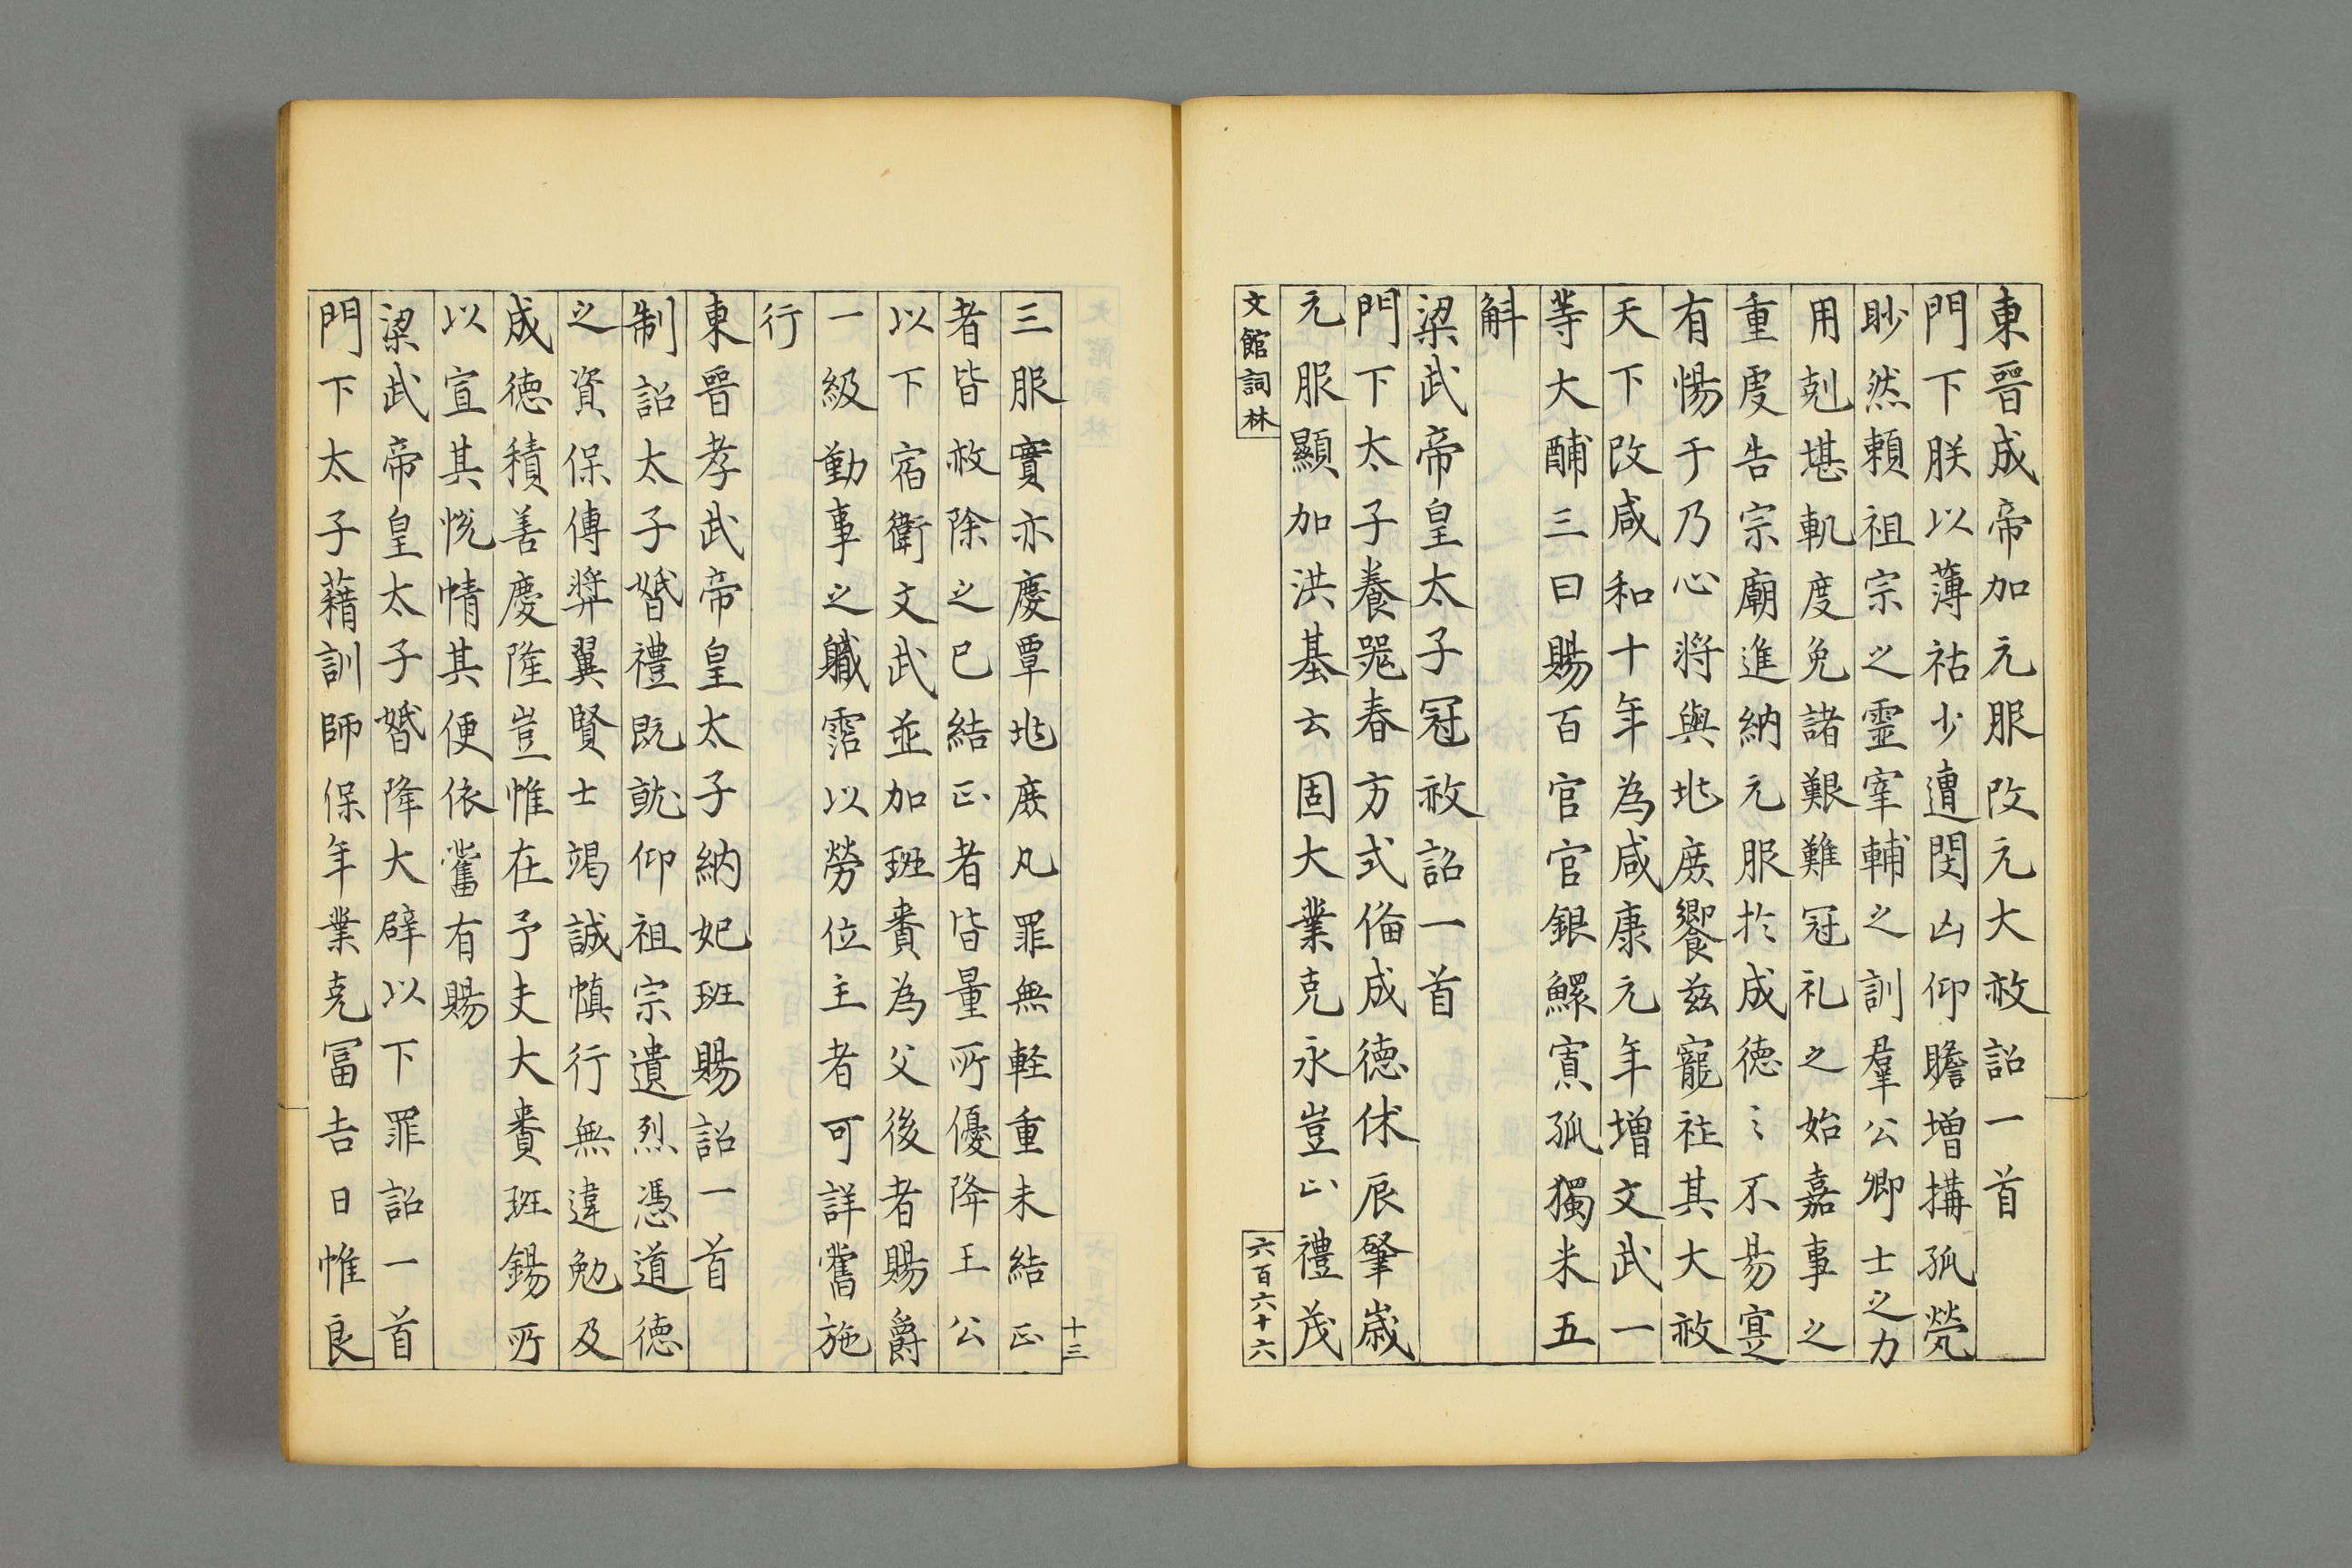 東晉成帝加元服改元大赦詔一首
門下朕以薄祜少遭閔凶仰瞻增搆孤煢
眇然賴祖宗之靈宰輔之訓羣公卿士之力
用剋堪軌度免諸艱難冠礼之始嘉事之
重虔告宗廟進納元服於成德〻不易寔
有惕于乃心將與兆庶饗兹寵祉其大赦
天下改咸和十年為咸康元年增文武一
等大酺三日賜百官官銀鰥寡孤獨米五
斛
梁武帝皇太子冠赦詔一首
門下太子養器春方式備成德休辰肇歲
元服顯加洪基云固大業克永豈止禮茂
文館詞林
六百六十六
三服實亦慶覃兆庶凡罪無輕重未結正
者皆赦除之已結正者皆量所優降王公
以下宿衛文武並加班賚為父後者賜爵
一級勤事之職霑以勞位主者可詳舊施
行
東晉孝武帝皇太子納妃班賜詔一首
制詔太子婚禮既就仰祖宗遺烈憑道德
之資保傅弈翼賢士竭誠慎行無違勉及
成德積善慶隆豈惟在予夫大賚班錫所
以宣其悅情其便依舊有賜
梁武帝皇太子婚降大辟以下罪詔一首
門下太子藉訓師保年業克冨吉日惟良
十三